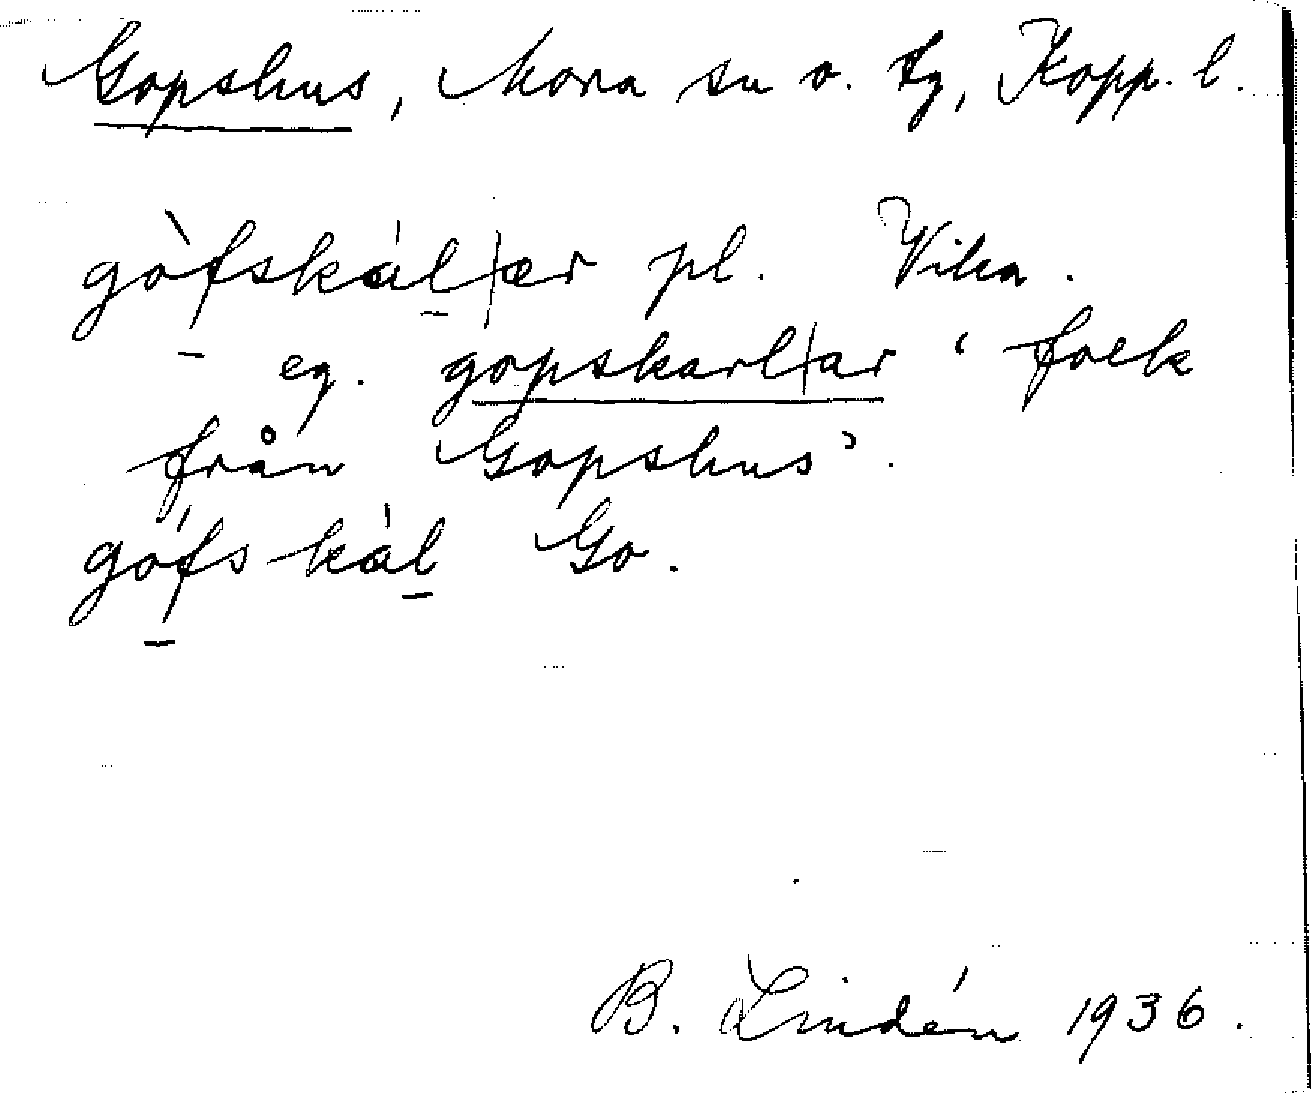 Gopshus, Mora sn o. tg, Kopp. l.
gòfskál|ær pl. Vika.
eg. gopskarl|ar ‘folk
från Gopshus’.
gófskàl Go.
B. Lindén 1936.